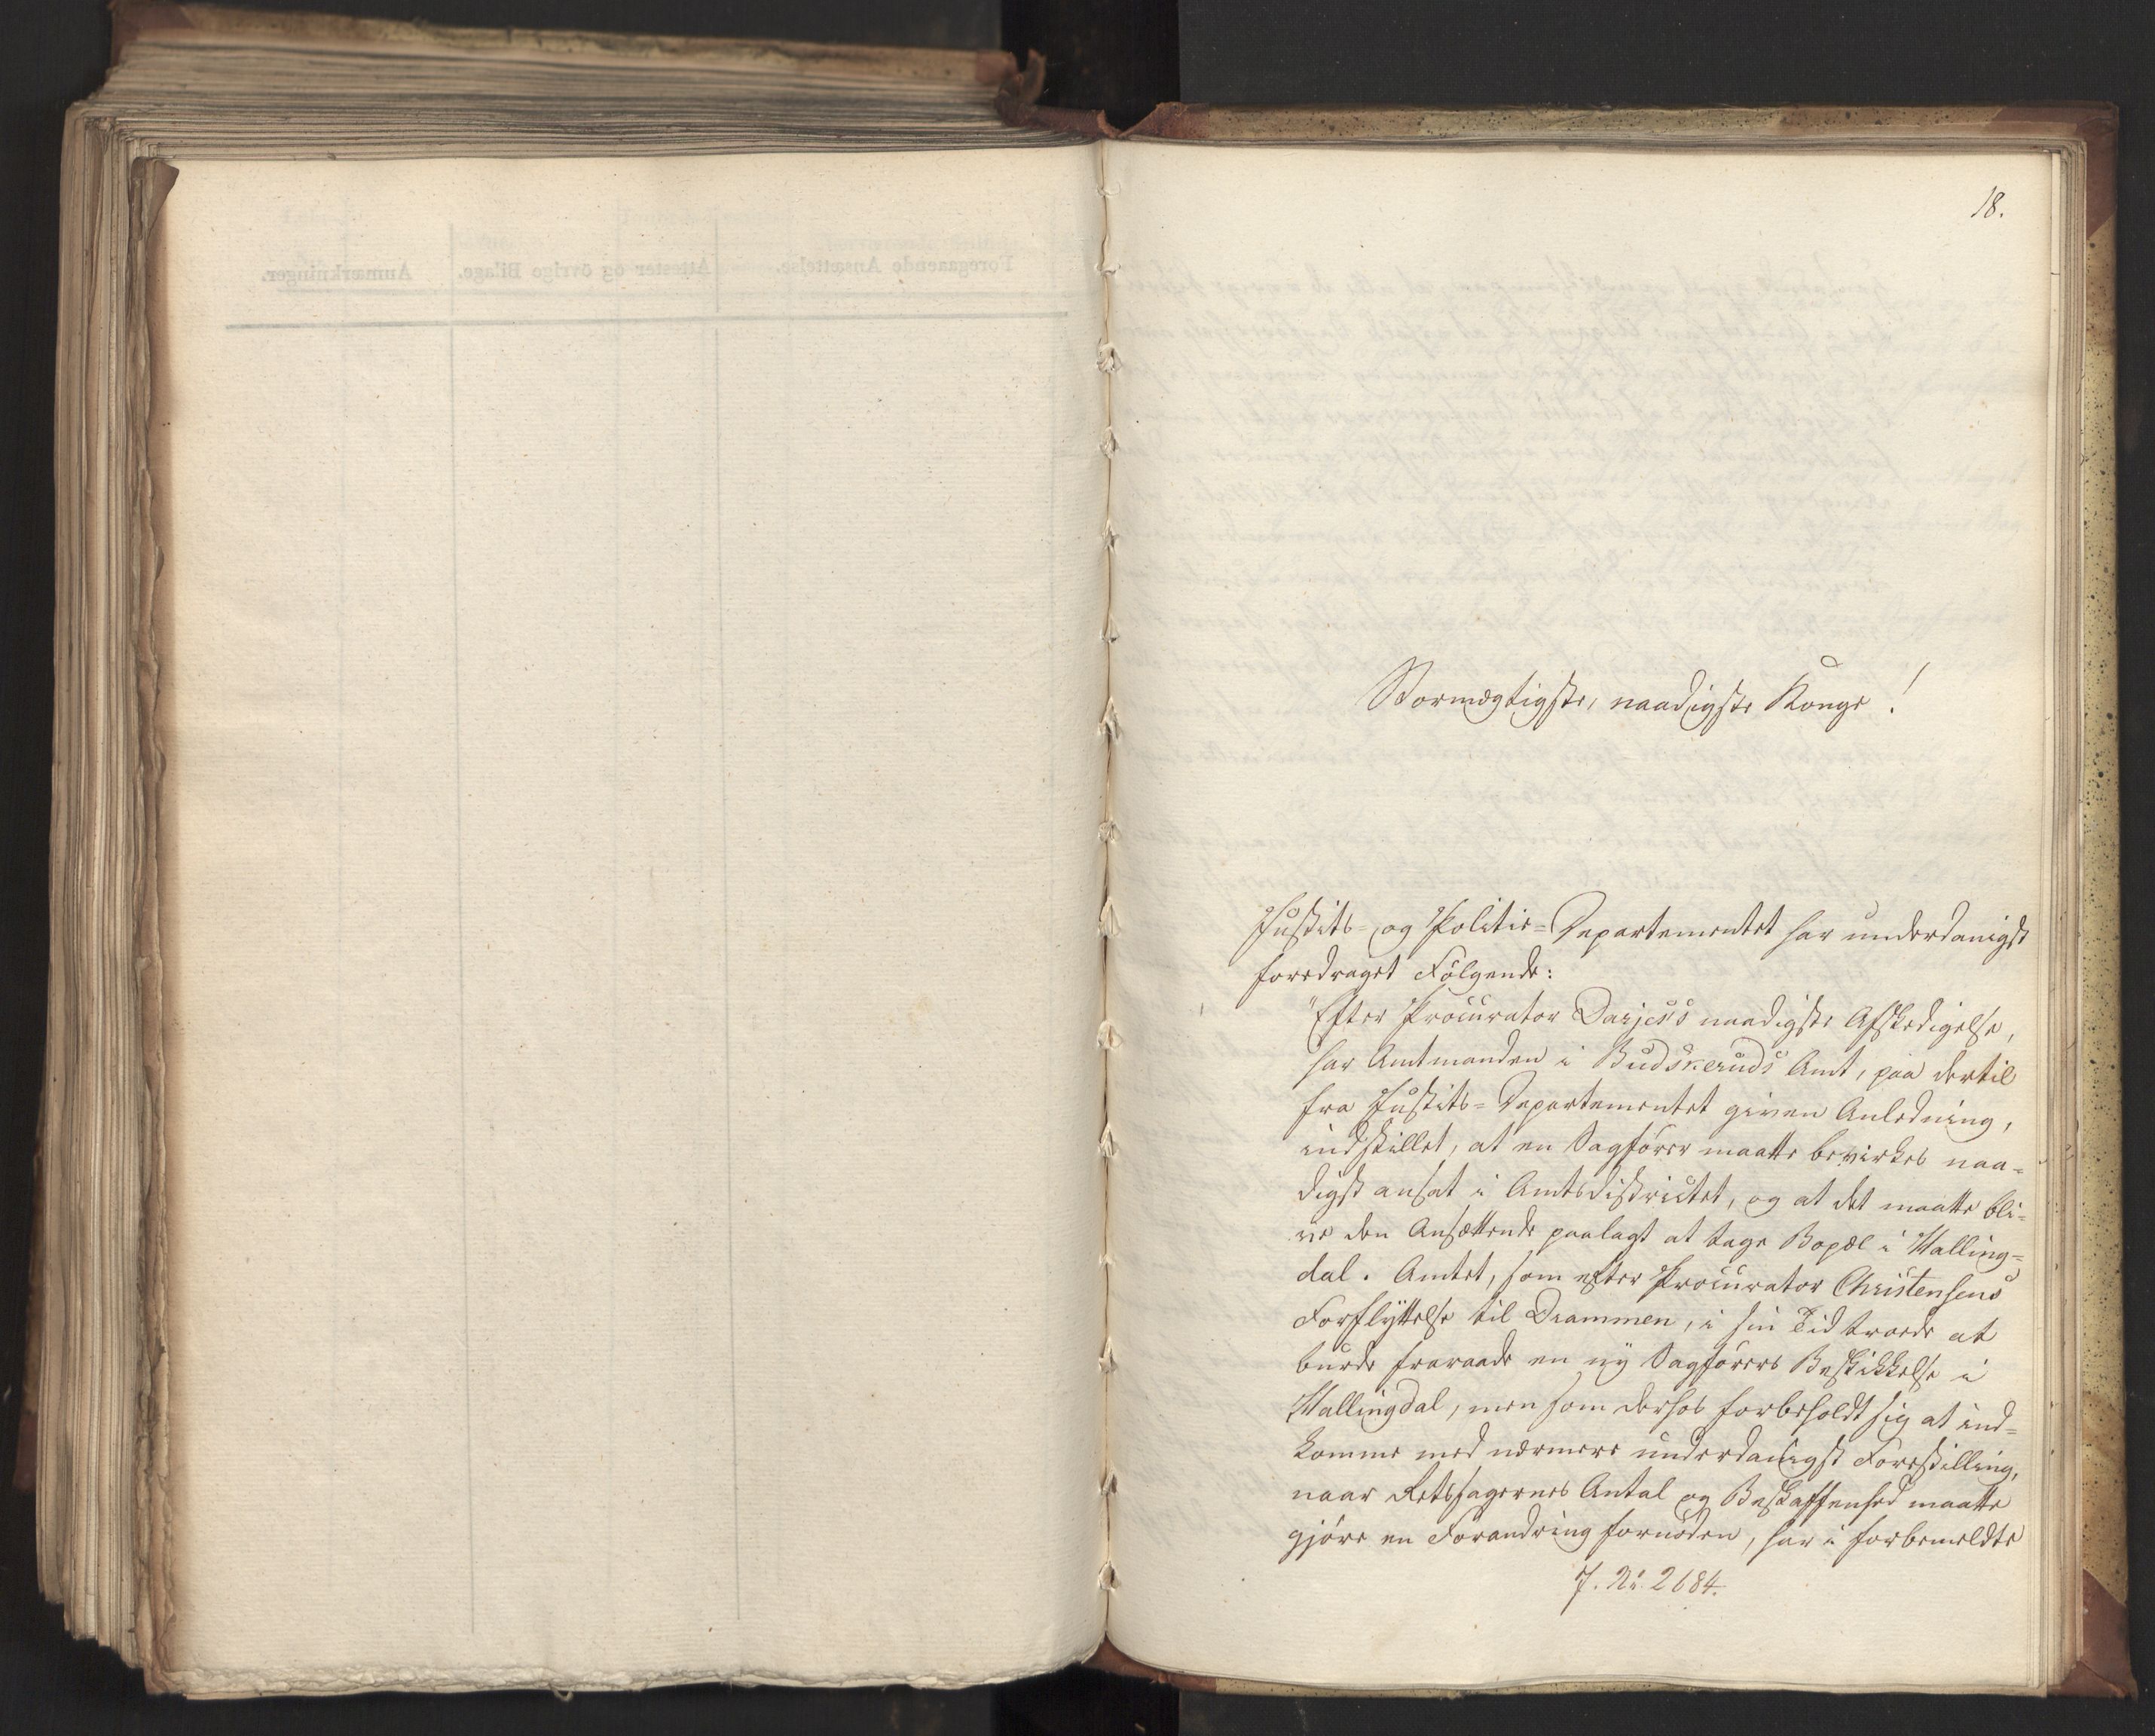 18.
Stormægtigste, naadigste Konge!
Justits- og Politie-Departementet har underdanigst
foredraget Følgende:
"Efter Procurator Darjes's naadigste Afskedigelse,
har Amtmanden i Budskeruds Amt, paa dertil
fra Justits-Departementet given Anledning,
indstillet, at en Sagfører maatte bevirkes naa-
digst ansat i Amtsdistrictet, og at det maatte bli-
ve den Ansættende paalagt at tage Bopæl i Halling-
dal. Amtet, som efter Procurator Christensens
Forflyttelse til Drammen, i sin Tid troede at
burde fraraade en ny Sagførers Beskikkelse i
Hallingdal, men som derhos forbeholdt sig at ind-
komme med nærmere underdanigst Forestilling,
naar Retssagernes Antal og Beskaffenhed maatte
gjøre en Forandring fornøden, har i forbemeldte
J. Nr. 2684.